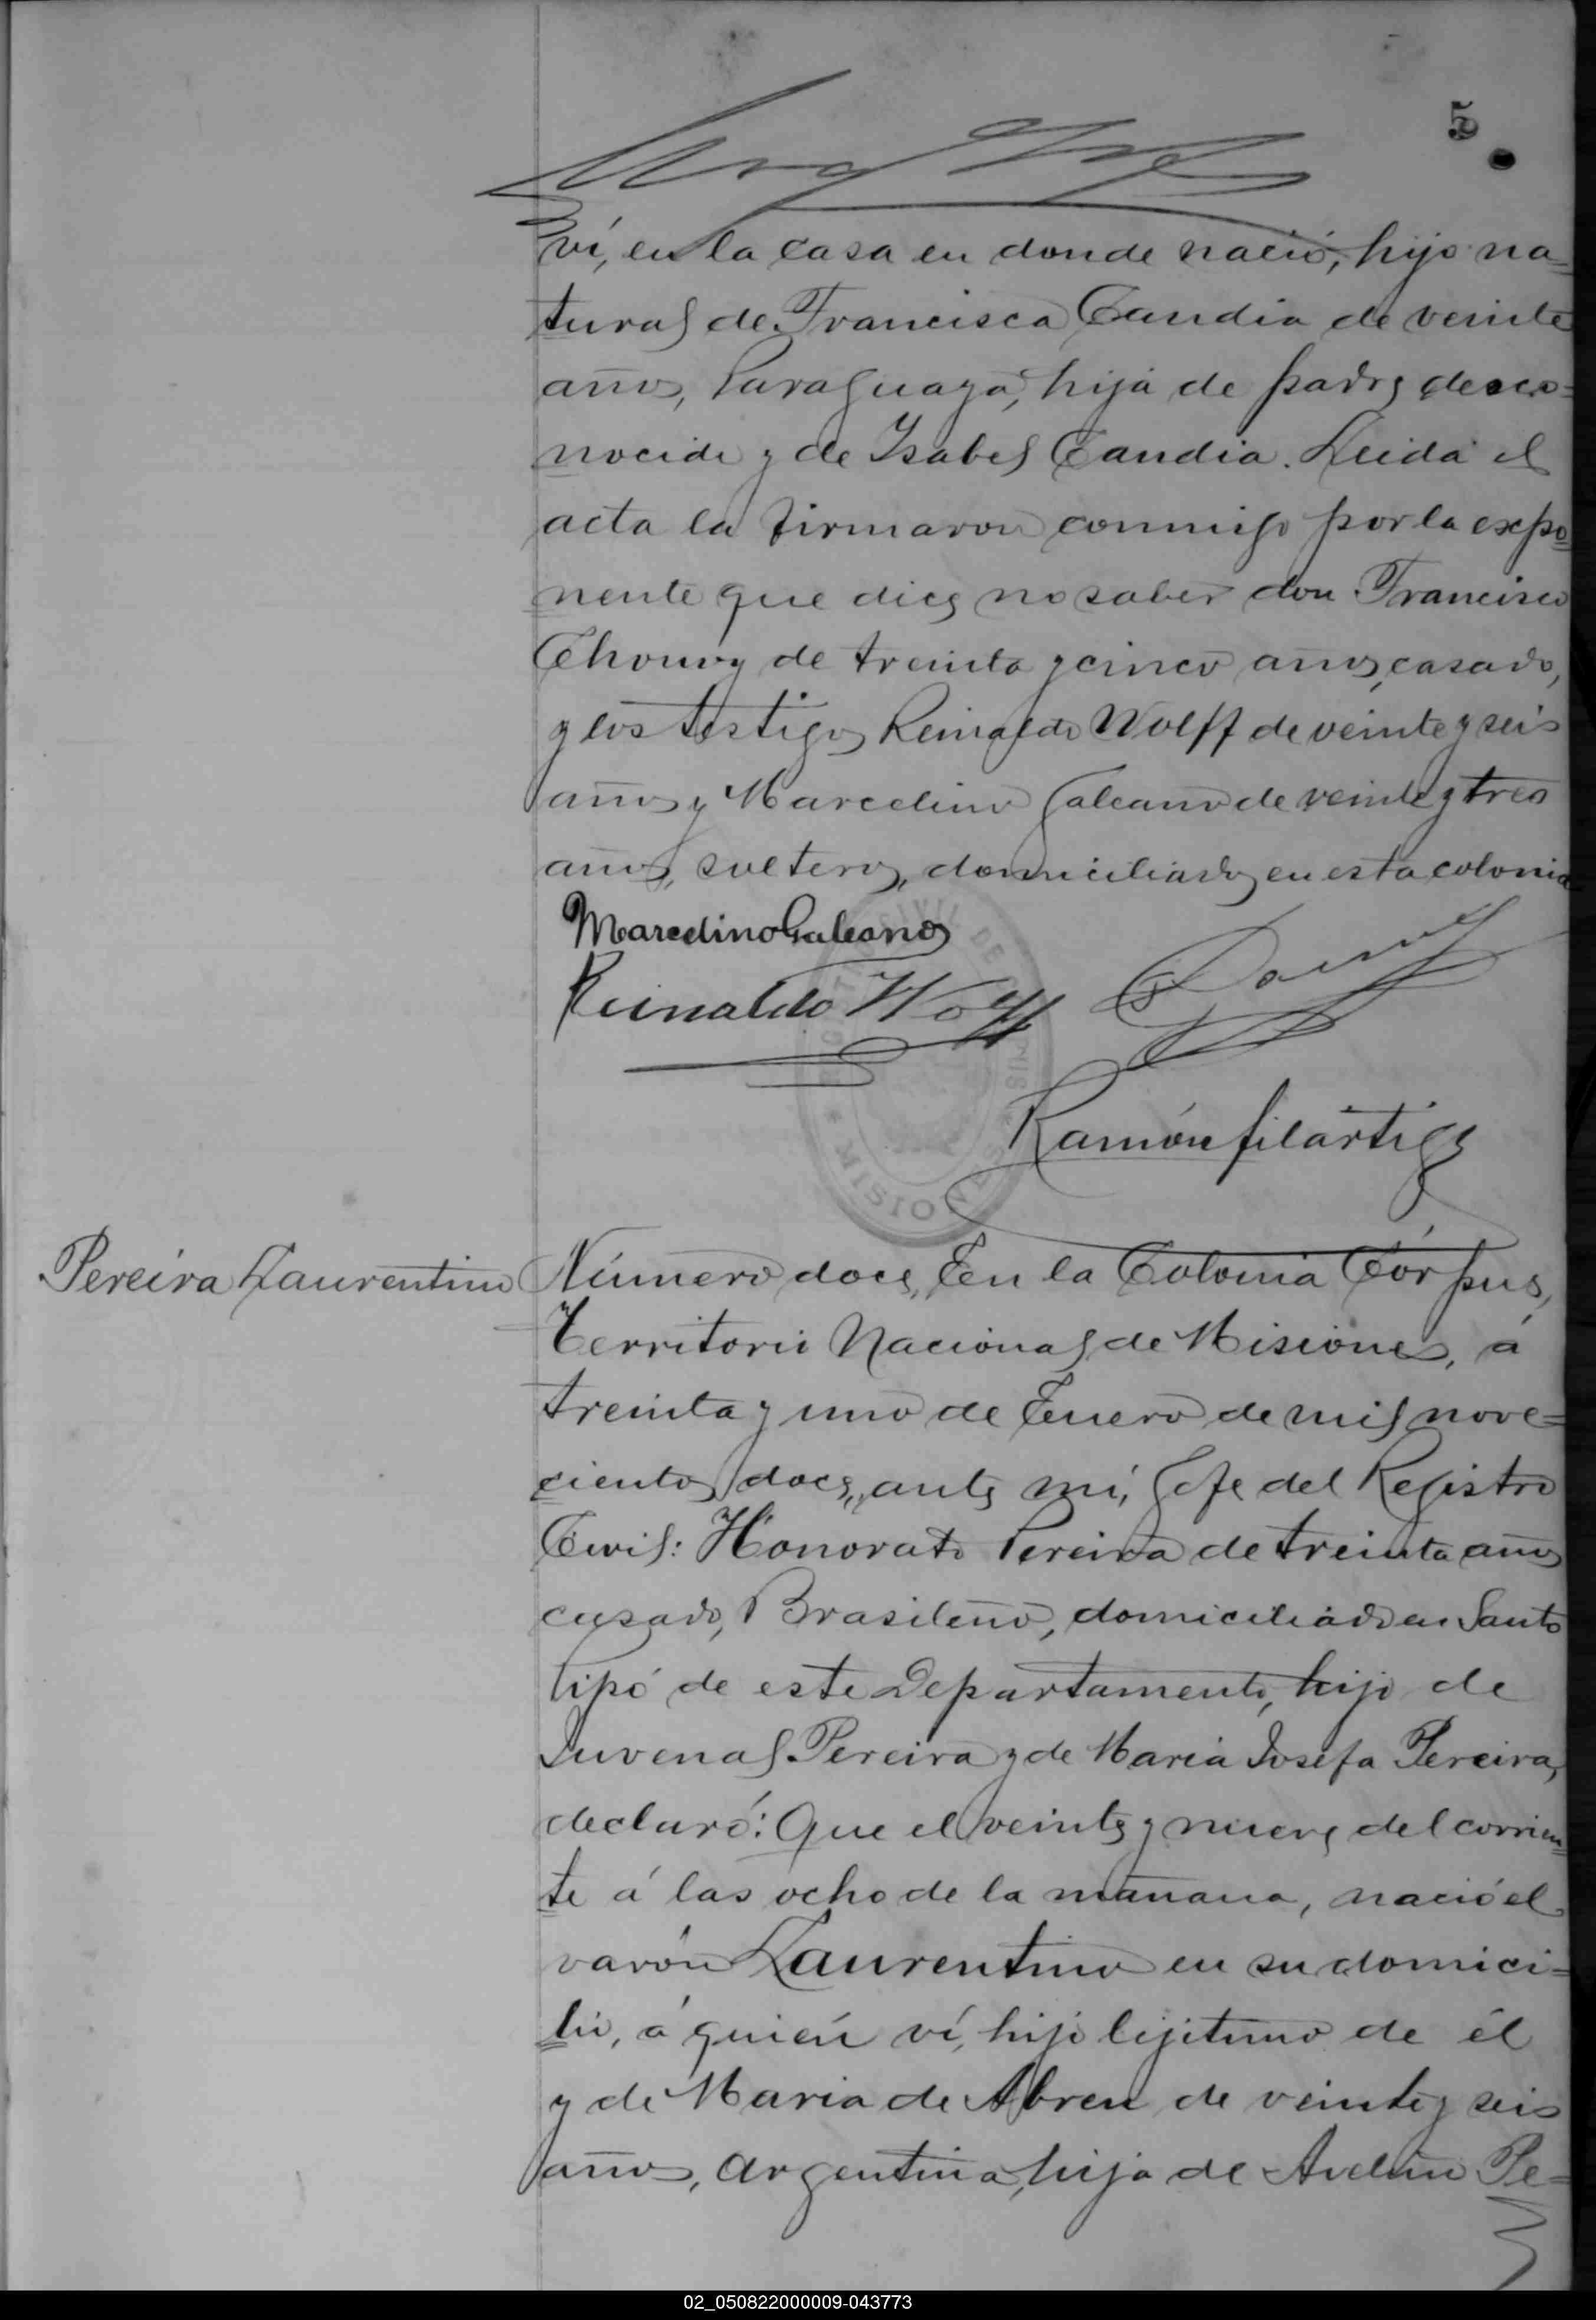 5
ví, en la casa en donde nació, hijo na=
tural de Francisca Candia de veinte
años, Paraguaya, hija de padre desco=
nocido y de Isabel Candia. Leida el
acta la firmaron conmigo por la expo=
nente que dice no saber don Francisco
de treinta y cinco años, casado,
y los testigos Reinaldo Wolff de veinte y seis
años y Marcelino Galeano de veinte y tres
años, solteros, domiciliados en esta colonia
Marcelino Galeano
Reinaldo Wolff
Ramón Filártiga
MISIONES
Pereira Laurentino
Número doce, En la Colonia Córpus,
Territorio Nacional de Misiones, á
treinta y uno de Enero de mil nove=
cientos doce, ante mí, Gefe del Registro
Civil: Honorato Pereira de treinta años
casado, Brasileño, domiciliado en Santo
Pipó de este Departamento, hijo de
Juvenal Pereira y de Maria Josefa Pereira,
declaró: Que el veinte y nueve del corrien=
te á las ocho de la mañana, nació el
varón Laurentino en su domici=
lio, á quién ví, hijo lejitimo de él
y de Maria de Abreu de veinte y seis
años, Argentina, hija de Avelino Pe=
02_050822000009-043773